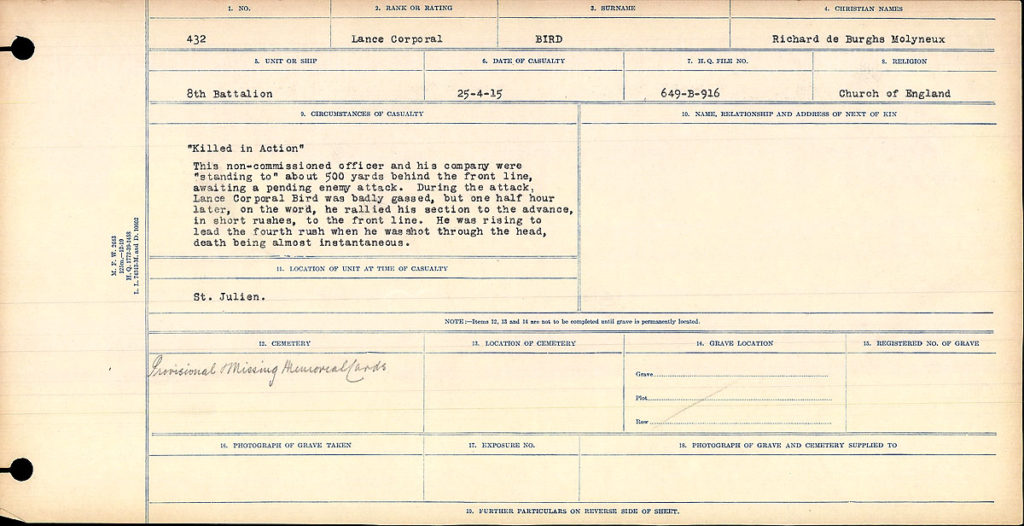 1. NO. 2. RANK OR RATING 3. SURNAME 4. CHRISTIAN NAMES
432 Lance Corporal BIRD Richard de Burghs Molyneux
5. UNIT OR SHIP 6. DATE OF CASUALTY 7. H.Q. FILE NO. 8. RELIGION
8th Battalion 25-4-15 649-B-916 Church of England
9. CIRCUMSTANCES OF CASUALTY 10. NAME, RELATIONSHIP AND ADDRESS OF NEXT OF KIN
"Killed in Action"
This non-commissioned officer and his company were
"standing to" about 500 yards behind the front line,
awaiting a pending enemy attack. During the attack,
Lance Corporal Bird was badly gassed, but one half hour
later, on the word, he rallied his section to the advance,
in short rushes, to the front line. He was rising to
lead the fourth rush when he was shot through the head,
death being almost instantaneous.
M. F. W. 2653
H. Q. 1772-39-1458
11. LOCATION OF UNIT AT TIME OF CASUALTY
St. Julien.
NOTE:—Items 12, 13 and 14 are not to be completed until grave is permanently located.
12. CEMETERY 13. LOCATION OF CEMETERY 14. GRAVE LOCATION 15. REGISTERED NO. OF GRAVE
Provisional Missing Memorial Cards
Grave
Plot
Row
16. PHOTOGRAPH OF GRAVE TAKEN 17. EXPOSURE NO. 18. PHOTOGRAPH OF GRAVE AND CEMETERY SUPPLIED TO
19. FURTHER PARTICULARS ON REVERSE SIDE OF SHEET.